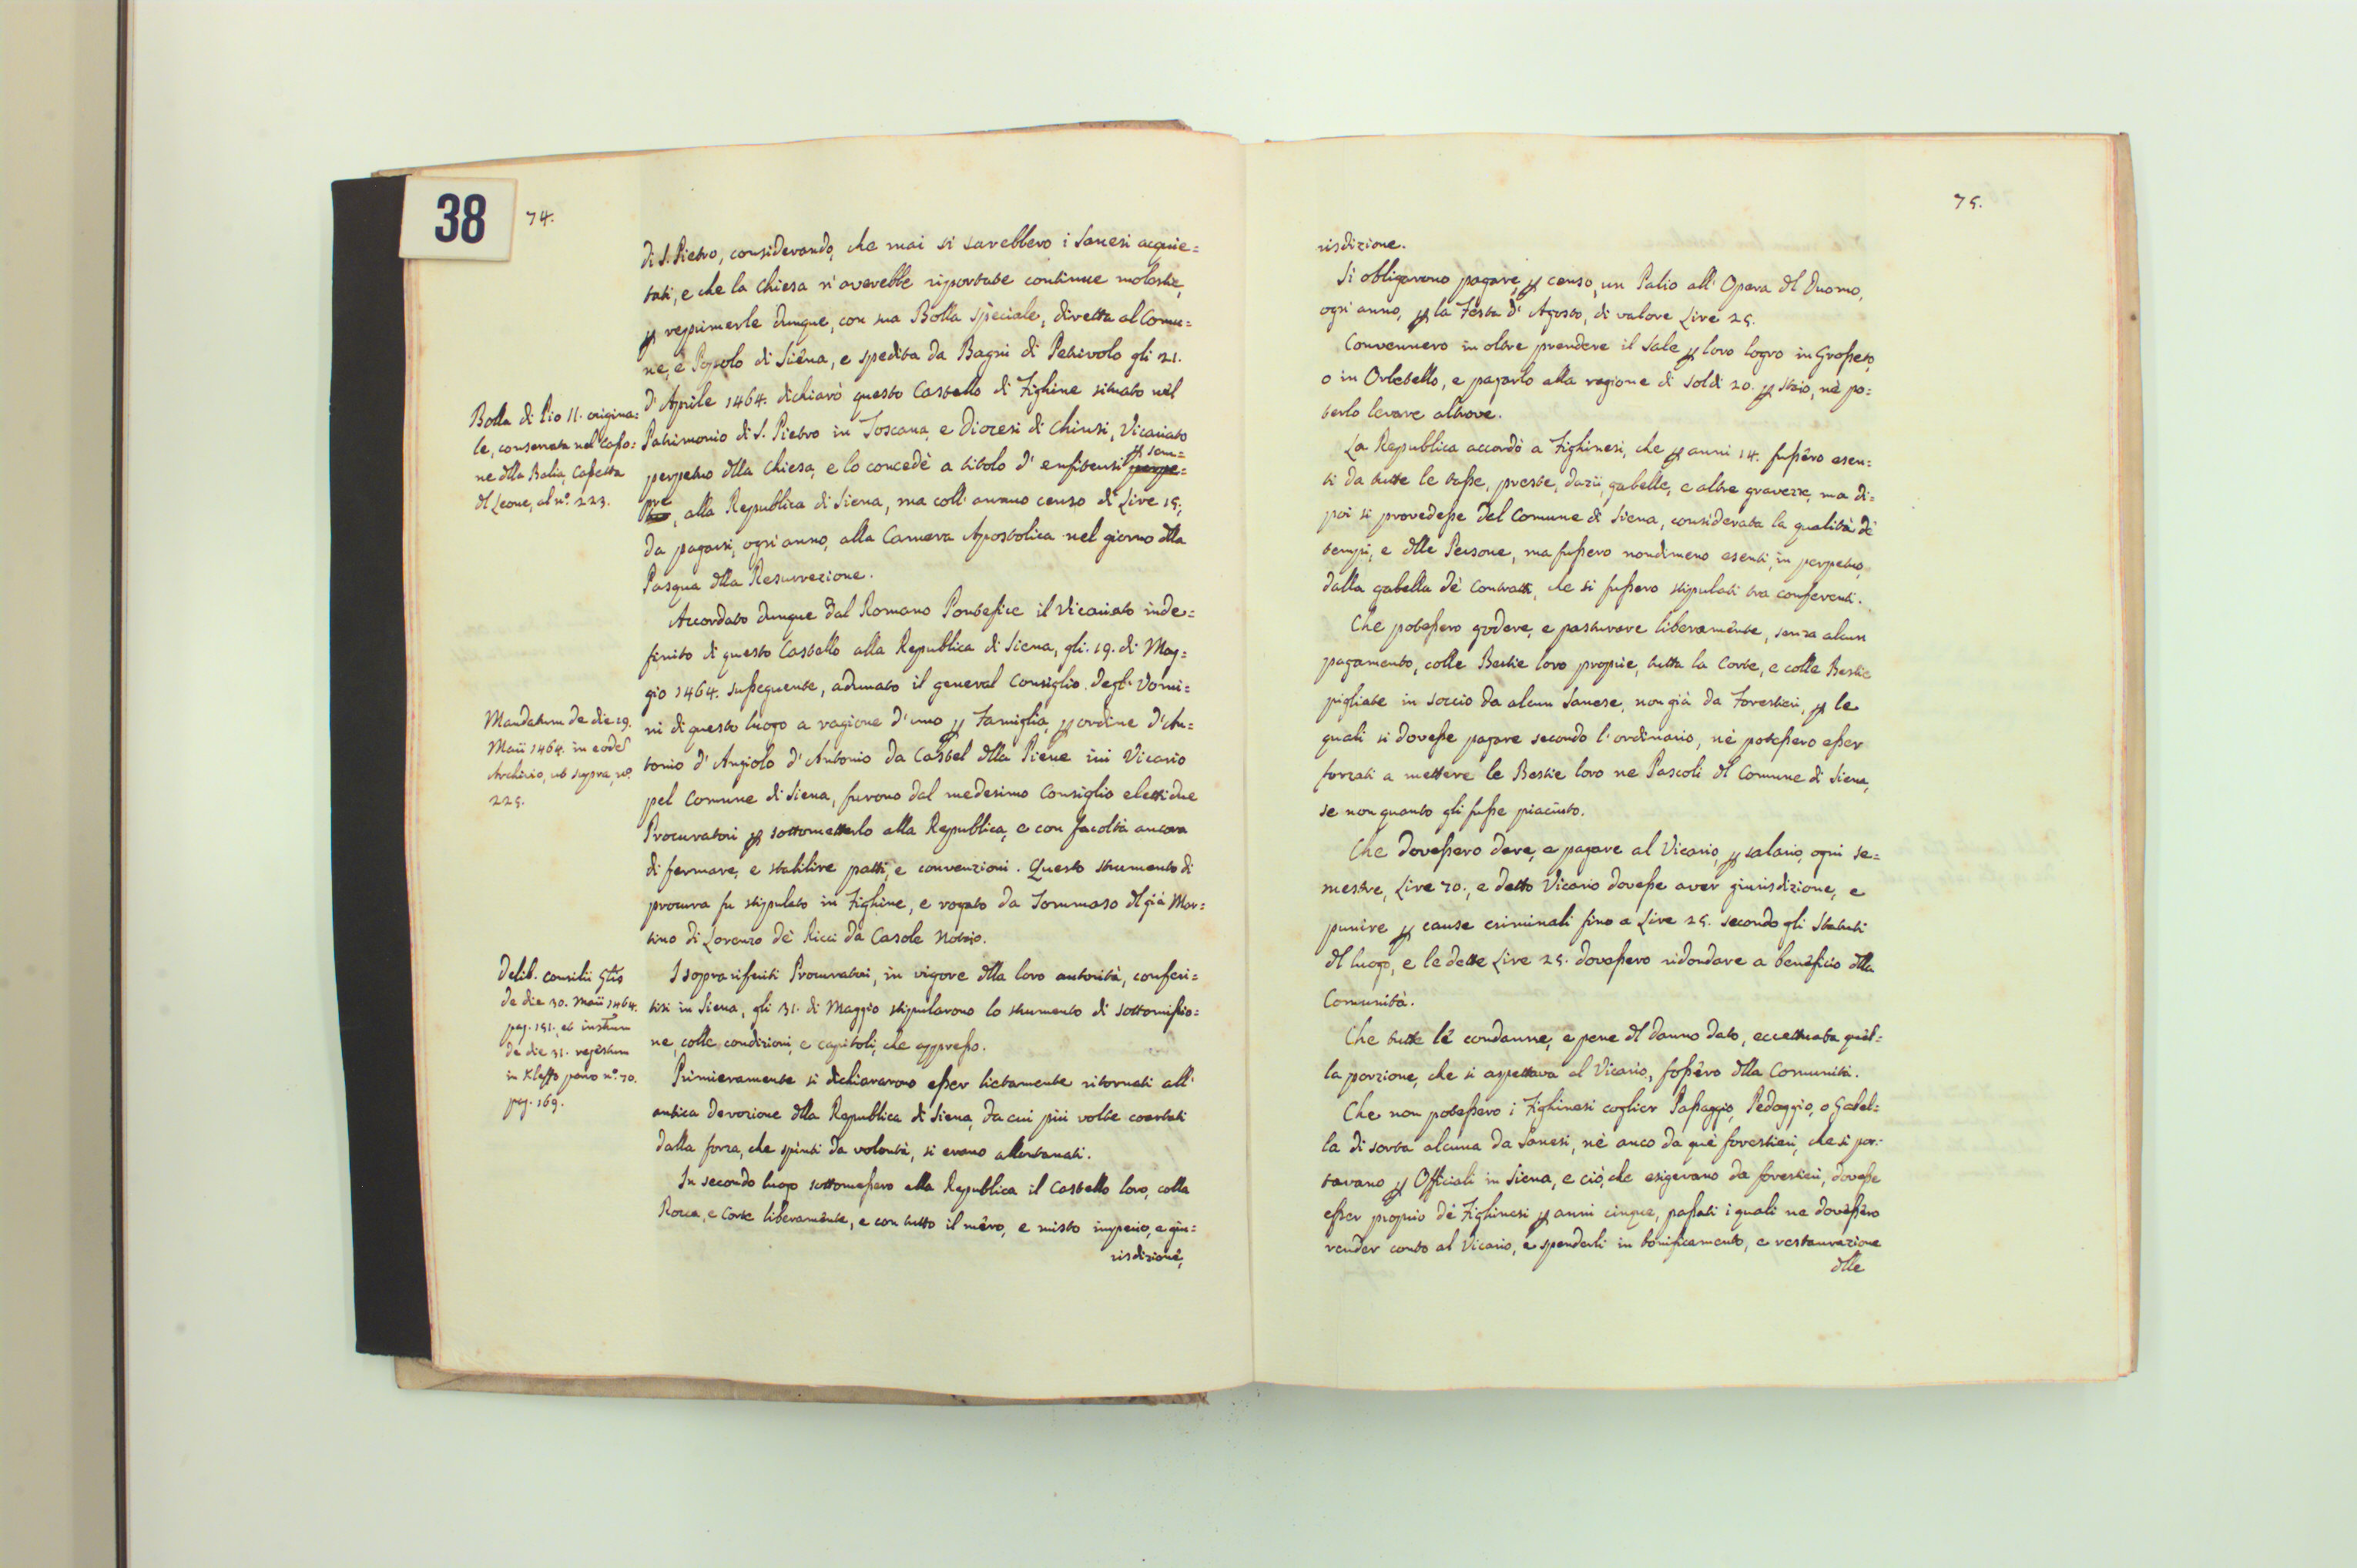 38
74.
di S. Pietro, considerando, che mai si sarebbero i Sanesi acquie=
tati, e che la Chiesa n'averebbe riportate continue molestie,
p reprimerle dunque, con sua Bolla speciale, diretta al Comu=
ne, e Popolo di Siena, e spedita da Bagni di Petriolo gli 21.
d'Aprile 1464. dichiarò questo Castello di Fighine situato nel
Patrimonio di S. Pietro in Toscana, e Diocesi di Chiusi, Vicariato
perpetuo dlla Chiesa, e lo concedè a titolo d'enfiteusi p sem=
pre, alla Republica di Siena, ma coll'annuo censo di Lire 15.,
da pagarsi, ogni anno, alla Camera Apostolica nel giorno dlla
Pasqua dlla Resurrezione.
Accordato dunque dal Romano Pontefice il Vicariato inde=
finito di questo Castello alla Republica di Siena, gli 19. di Mag=
gio 1464. susseguente, adunato il general Consiglio degl'Uomi=
ni di questo luogo a ragione d'uno p Famiglia, p ordine d'An=
tonio d'Angiolo d'Antonio da Castel dlla Pieve ivi Vicario
pel Comune di Siena, furono dal medesimo Consiglio eletti due
Procuratori p sottometterlo alla Republica, e con facoltà ancora
di fermare, e stabilire patti, e convenzioni. Questo strumento di
procura fu stipulato in Fighine, e rogato da Tommaso dl già Mar=
tino di Lorenzo de' Ricci da Casole Notaio.
I sopra riferiti Procuratori, in vigore dlla loro autorità, conferi=
tisi in Siena, gli 31. di Maggio stipularono lo strumento di sottomissio=
ne, colle condizioni, e capitoli, che appresso.
Primieramente si dichiararono esser lietamente ritornati all'
antica devozione dlla Republica di Siena, da cui più volte coartati
dalla forza, che spinti da volontà, si erano allontanati.
In secondo luogo sottomessero alla Republica il Castello loro, colla
Rocca, e Corte liberamente, e con tutto il mero, e misto imperio, e giu=
risdizione,
Bolla di Pio II. origina=
le, conservata nel Casso=
ne dlla Balia, Cassetta
dl Leone, al n.º 223.
Mandatum de die 19.
Maii 1464. in eodem
Archivio, ut supra, n.º
225.
Delib. Consilii Glis
de die 30. Maii 1464.
pag. 151. et instrum
de die 31. registrum
in Kleffo parvo n.º 70.
pag. 169.
75.
risdizione.
Si obligarono pagare, p censo, un Palio all'Opera dl Duomo,
ogni anno, p la Festa d'Agosto, di valore Lire 25.
Convennero in oltre prendere il Sale p loro logro in Grosseto,
o in Orbetello, e pagarlo alla ragione di soldi 20. p staio, nè po=
terlo levare altrove.
La Republica accordò a Fighinesi, che p anni 14. fussero esen=
ti da tutte le tasse, preste, dazii, gabelle, e altre gravezze, ma di=
poi si provedesse del Comune di Siena, considerata la qualità di
tempi, e dlle Persone, ma fussero nondimeno esenti, in perpetuo,
dalla gabella de' Contratti, che si fussero stipulati tra conferenti.
Che potessero godere, e pasturare liberamente, senza alcun
pagamento, colle Bestie loro proprie, tutta la Corte, e colle Bestie
pigliate in soccio da alcun Sanese, non già da Forestieri, p le
quali si dovesse pagare secondo l'ordinario, nè potessero esser
forzati a mettere le Bestie loro ne Pascoli dl Comune di Siena,
se non quanto gli fusse piaciuto.
Che dovessero dare, e pagare al Vicario, p salario, ogni se=
mestre, Lire 70., e detto Vicario dovesse aver giurisdizione, e
punire p cause criminali fino a Lire 25. secondo gli Statuti
dl luogo, e le dette Lire 25. dovessero ridondare a benefìcio dlla
Comunità.
Che tutte le condanne, e pene dl danno dato, eccettuata quel=
la porzione, che si aspettava al Vicario, fossero dlla Comunità.
Che non potessero i Fighinesi coglier Passaggio, Pedaggio, o Gabel=
la di sorta alcuna da Sanesi, nè anco da que' forestieri, che si por=
tavano p Officiali in Siena, e ciò, che esigevano da forestieri, dovesse
esser proprio de' Fighinesi p anni cinque, passati i quali ne dovessero
render conto al Vicario, e spenderli in bonificamento, e restaurazione
dlle